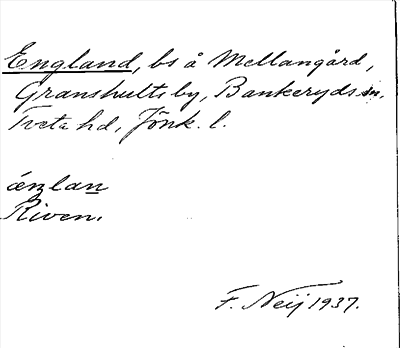 England, bs å Mellangård,
Granshults by, Bankeryds sn,
Tveta hd, Jönk. l.
áŋlan
Riven.
F. Neij 1937.